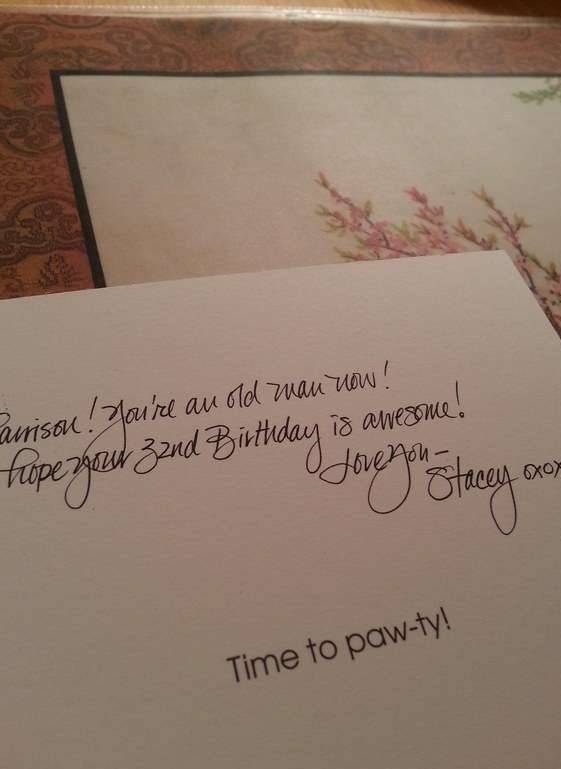 arrison! You're an old man now!
hope your 32nd Birthday is awesome!
Love you-
Stacey oxox
Time to paw-ty!